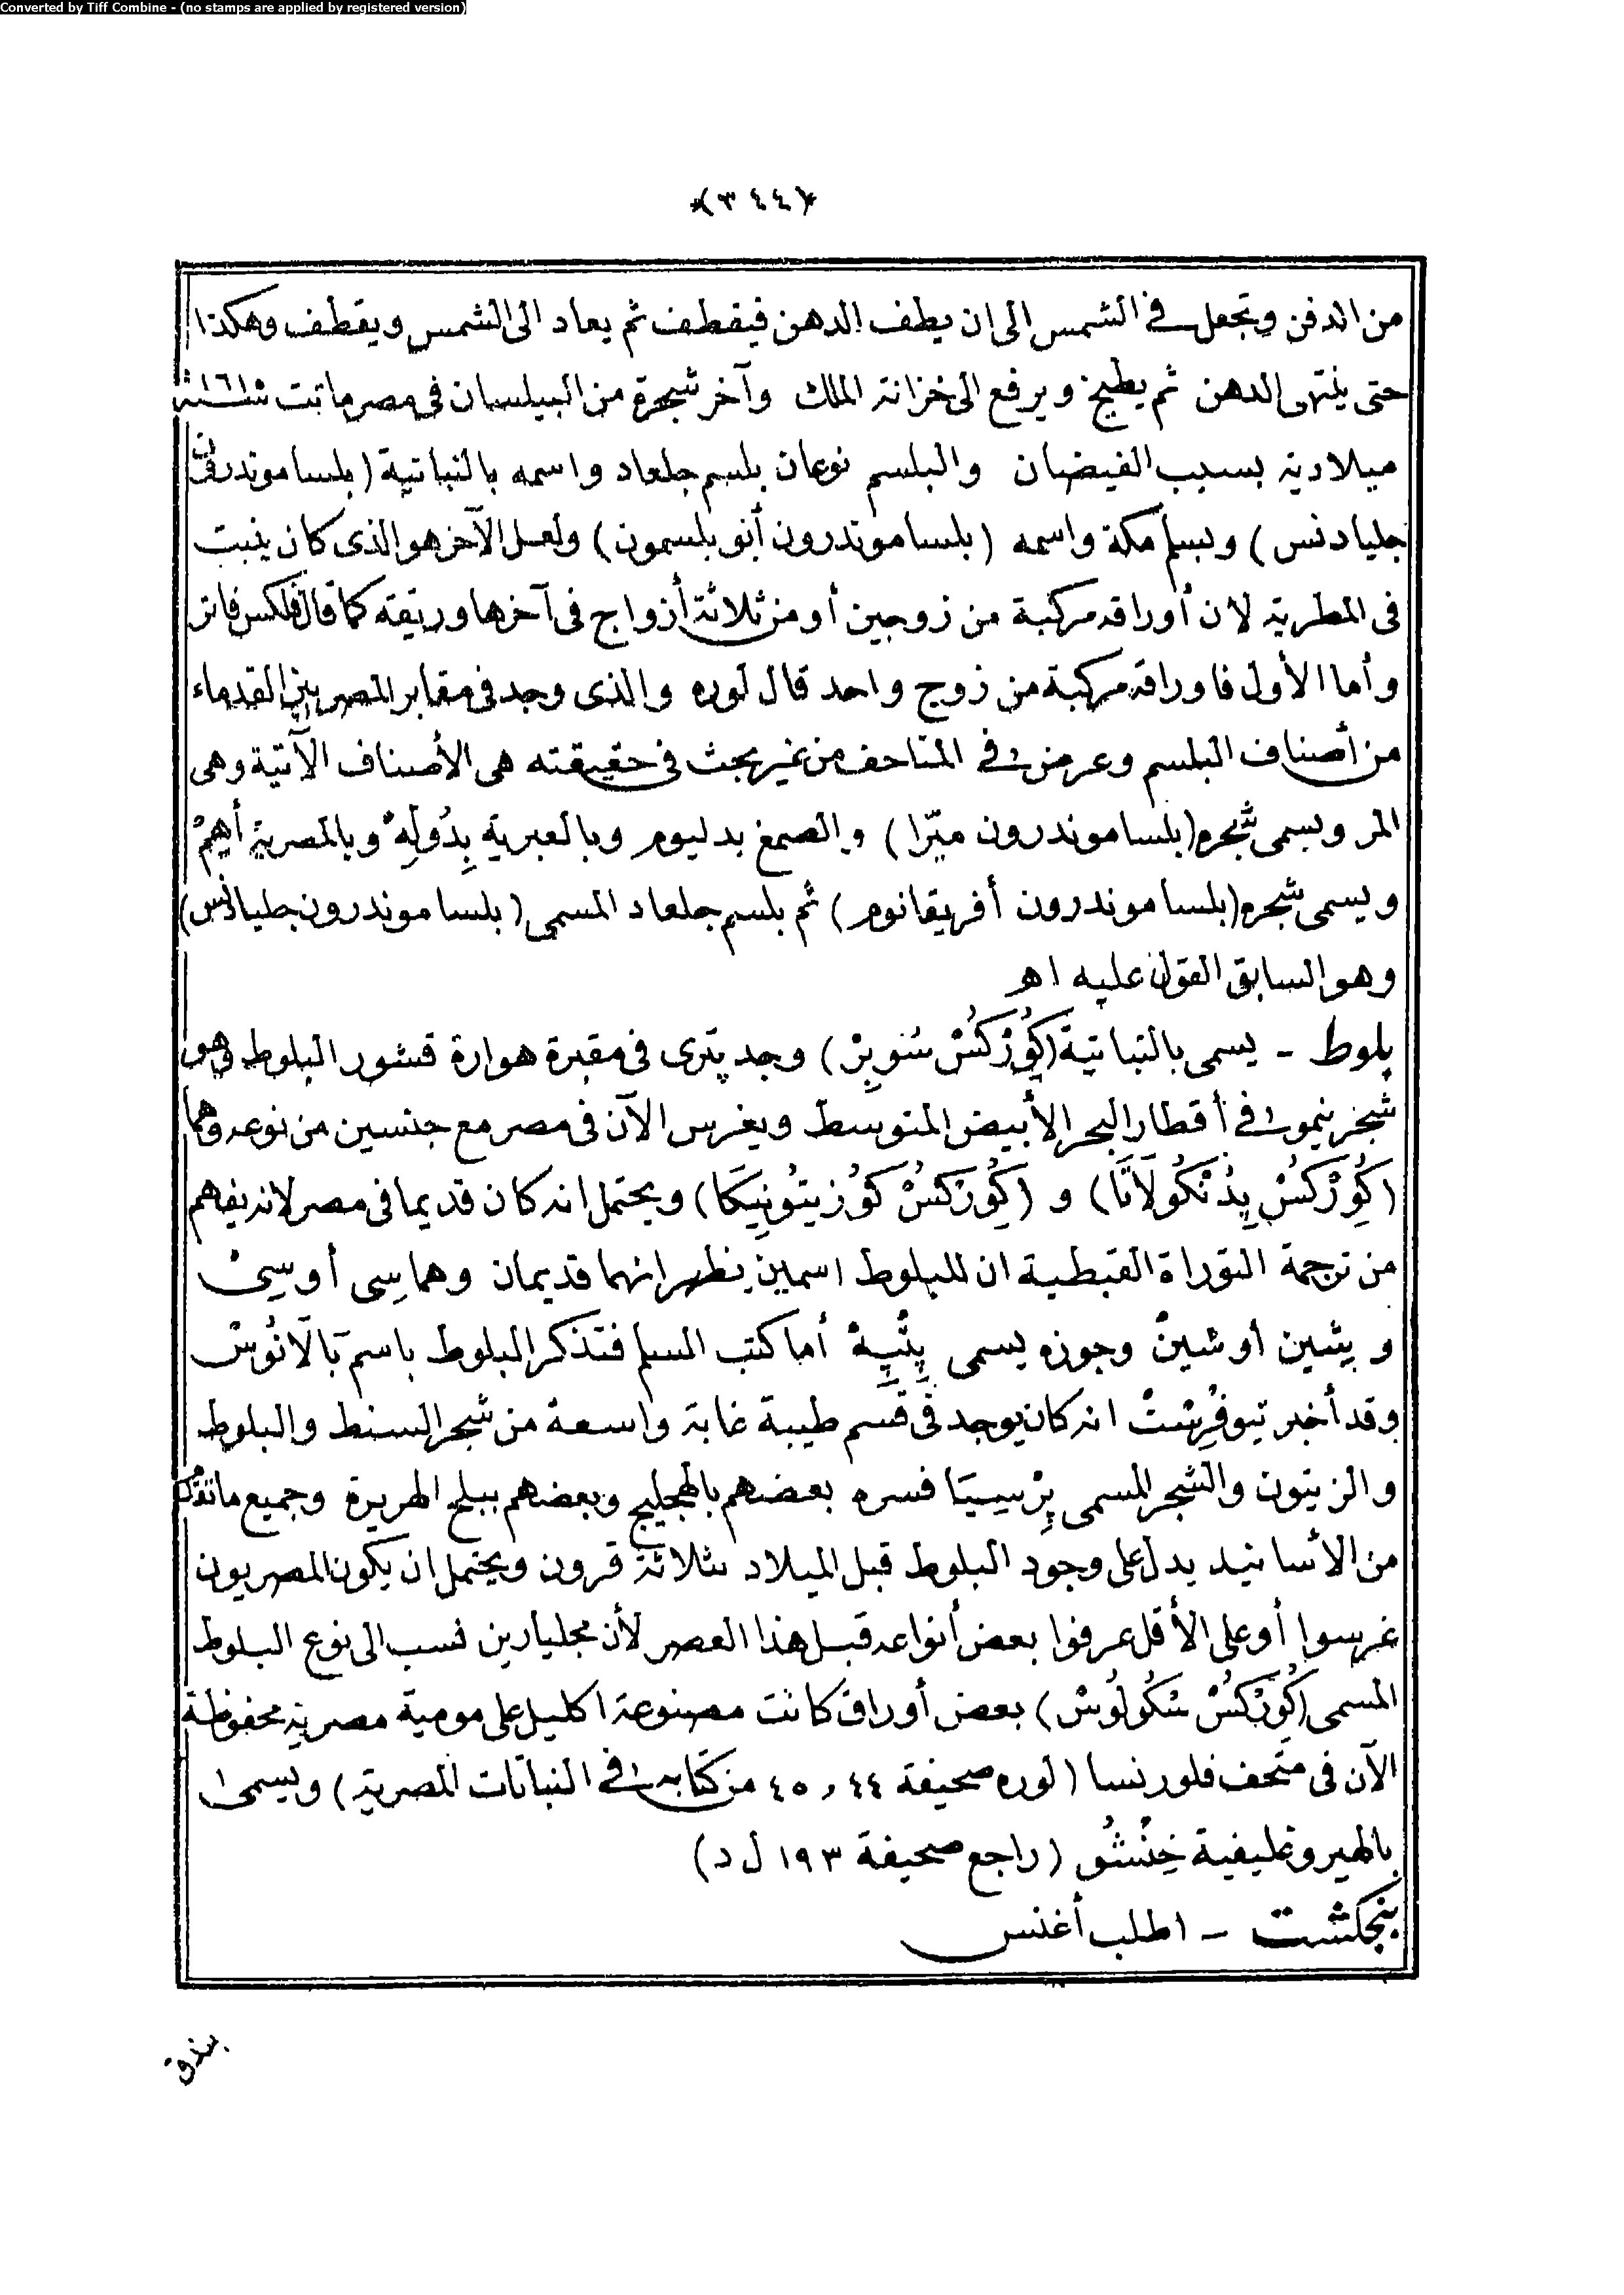 Converted by Tiff Combine - (no stamps are applied by registered version)
﴿٣٤٤﴾
من الدفن وتجعل فى الشمس الى ان يطف الدهن فيقطف ثم يعاد الى الشمس ويقطف وهكذا
حتى ينتهى الدهن ثم يطبخ ويرفع الى خزانة الملك وآخر شجرة من البيلسان فى مصر ماتت سنة ١٦١٥
ميلادية بسبب الفيضان والبلسم نوعان بلسم جلعاد واسمه بالنباتية (بلساموندرون
جليادنس) وبسلم مكة واسمه (بلساموندرون أبو بلسمون) ولعل الآخر هو الذى كان ينبت
فى المطرية لان أوراقه مركبة من زوجين أو من ثلاثة أزواج فى آخرها وريقه كما قال فلكس فاتر
وأما الأول فاوراقه مركبة من زوج واحد قال لوره والذى وجد فى مقابر المصريين القدماء
من أصناف البلسم وعرض فى المتاحف من غير بحث فى حقيقته هى الأصناف الآتية وهى
المر ويسمى شجره (بلساموندرون ميّرا) والصمغ بدليوم وبالعبرية بِدُولَهْ وبالمصرية أَهِمْ
ويسمى شجره (بلساموندرون أفريقانوم) ثم بلسم جلعاد المسمى (بلساموندرون جليادنس)
وهو السابق القول عليه اه
بلوط - يسمى بالنباتية (كُوِرْكُسْ سُوبِرْ) وجد پترى فى مقبرة هوارة قشور البلوط وهو
شجر ينمو فى أقطار البحر الأبيض المتوسط ويغرس الآن فى مصر مع جنسين من نوعه وهما
(كُوِرْكُسْ پِدُنْكُولَاتَا) و (كُوِرْكُسْ كُوُزِيتُونِيكَا) ويحتمل انه كان قديما فى مصر لانه يفهم
من ترجمة التوراة القبطية ان للبلوط اسمين يظهر انهما قديمان وهما سِى أو سِىْ
و يشين أو شينْ وجوزه يسمى پِتُّپِهْ أما كتب السلم فتذكر البلوط باسم بَالَانُوسْ
وقد أخبر تيوفْرِسْتْ انه كان يوجد فى قسم طيبة غابة واسعة من شجر السنط والبلوط
والزيتون والشجر المسمى پِرْسِيَا فسره بعضهم بالهجليج وبعضهم ببلح الهريرة وجميع ما تقدم
من الأسانيد يدل على وجود البلوط قبل الميلاد بثلاثة قرون ويحتمل ان يكون المصريون
غرسوا أو على الأقل عرفوا بعض أنواعه قبل هذا العصر لأن مجليارين نسب الى نوع البلوط
المسمى (كُوِرْكُسْ سْكُولُوسْ) بعض أوراق كانت مصنوعة اكليل على مومية مصرية محفوظة
الآن فى متحف فلورنسا (لوره صحيفة ٤٤ و ٤٥ من كتابه فى النباتات المصرية) ويسمى
بالهيروغليفية خِنْشُو (راجع صحيفة ١٩٣ ل د)
بنجكشت - اطلب أغنس
بندق